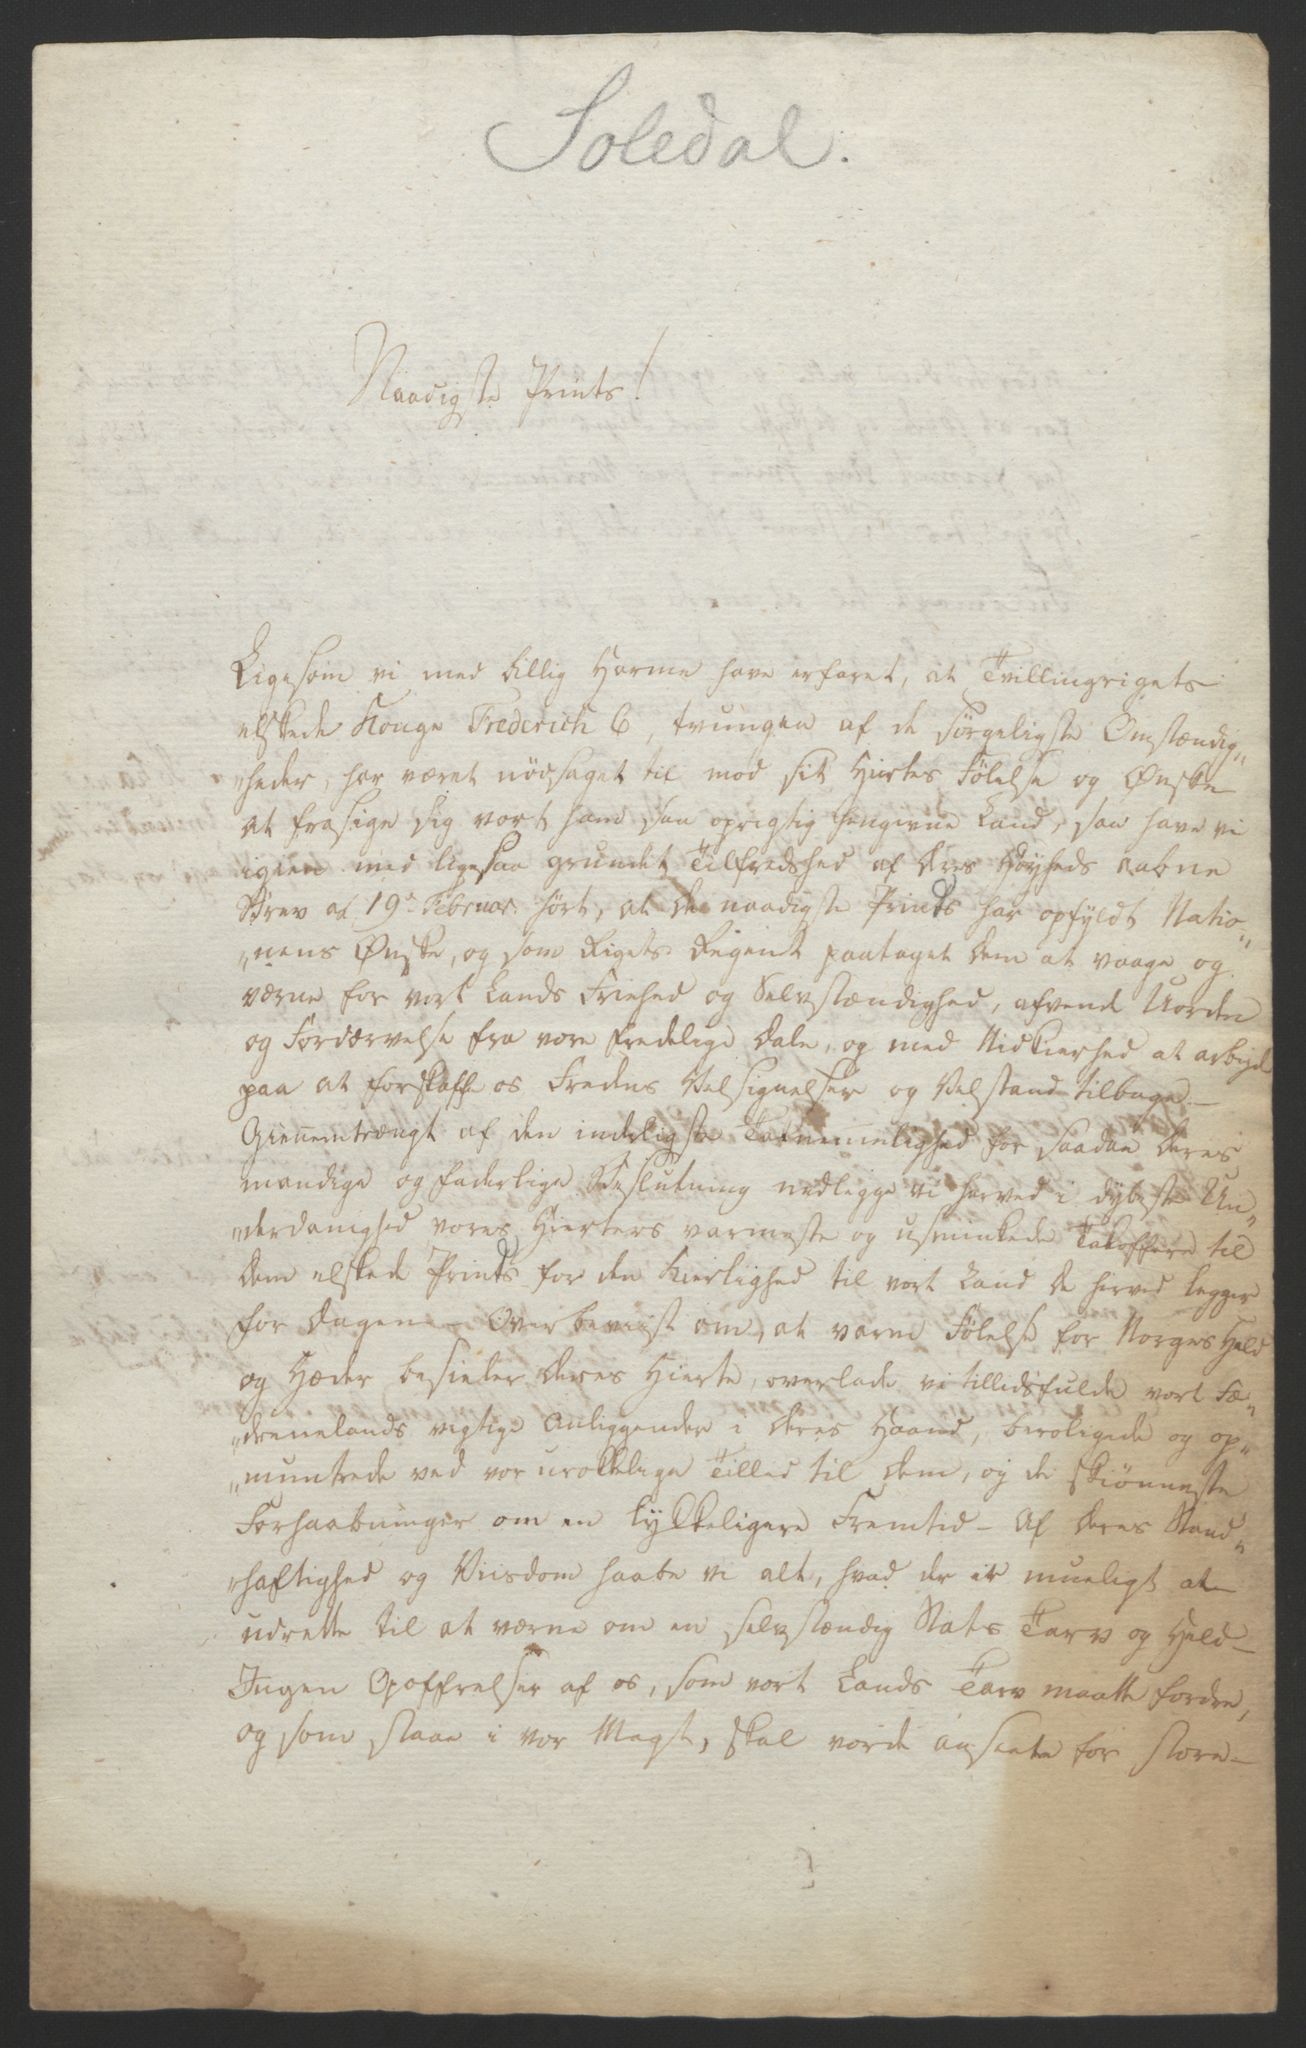 Soledal.
Naadigste Prints!
Ligesom vi med billig Harme have erfaret, at Tvillingrigets
elskede Konge Frederich 6, tvungen af de sørgeligste Omstændig„
„heder, har været nödsaget til mod sit Hiertes Følelse og Ønske
at frasige sig vort ham saa oprigtig hengivne Land, saa have vi
igien med ligesaa grundet Tilfredshed af Deres Høyheds aabne
Brev af 19de Februar hørt, at De naadigste Prinds har opfyldt Natio„
„nens Ønske, og som Rigets Regent paataget Dem at vaage og
værne for vort Lands Friehed og Selvstændighed, afvende Uorden
og Fordærvelse fra vore fredelige Dale, og med Nidkierhed at arbeyde
paa at forskaffe os Fredens Velsignelser og Velstand tilbage. —
Giennemtrængt af den inderligste Taknemmelighed for saadan Deres
mandige og faderlige Beslutning nedlegge vi herved i dybeste Un„
„derdanighed vores Hierters varmeste og usminkede Takoffere til
Dem elskede Prinds for den Kierlighed til vort Land De herved legger
for Dagen — Overbeviist om, at varm Følelse for Norges Held
og Hæder besieler Deres Hierte, overlade vi tillidsfulde vort Fæ„
„drenelands vigtige Anliggender i Deres Haand, beroligede og op„
„muntrede ved vor urokkelige Tillid til Dem, og de skiønneste
Forhaabninger om en lykkeligere Fremtid — Af Deres Stand„
„haftighed og Viisdom haabe vi alt, hvad der er mueligt at
udrette til at værne om en selvstændig Stats Tarv og Held —
Ingen Opoffrelser af os, som vort Lands Tarv maatte fordre,
og som staae i vor Magt, skal vorde ansete for store —